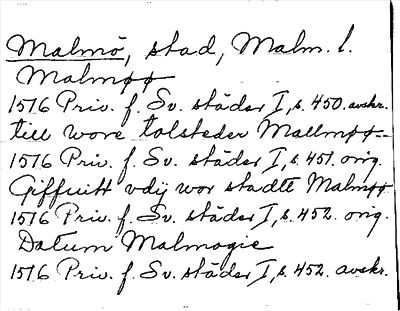 Malmö, stad, Malm. l.
Malmøø
1516 Priv. f. Sv. städer I, s. 450. avskr.
till wore tolsteder Mallmøø=
1516 Priv. f. Sv. städer I, s. 451. orig.
Giffuitt vdij wor stadtt Malmøø
1516 Priv. f. Sv. städer I, s. 452. orig.
Datum Malmogie
1516 Priv. f. Sv. städer I, s. 452. avskr.